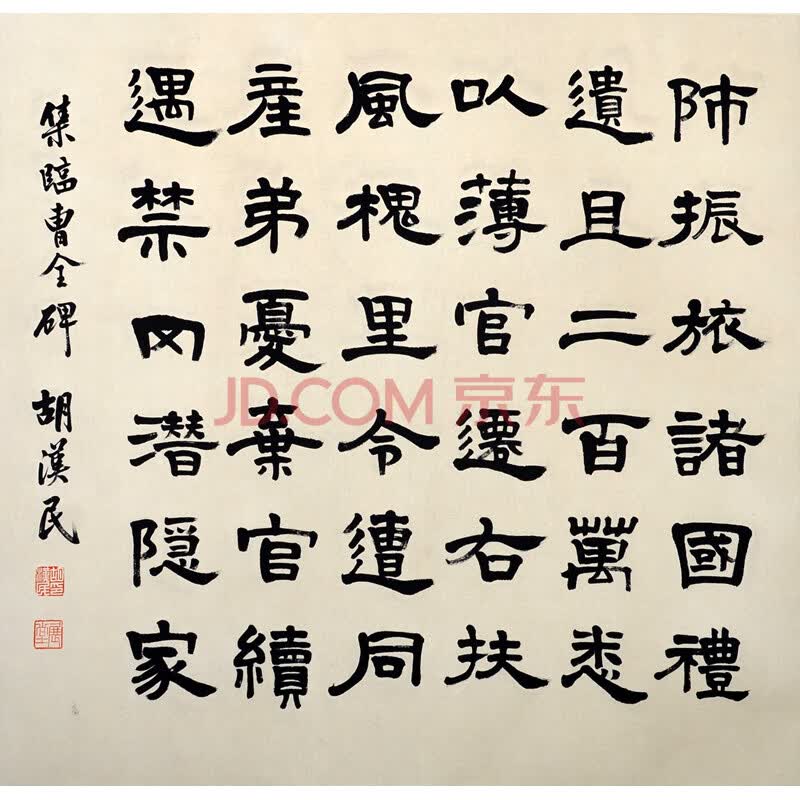 師振旅諸國禮
遺且二百萬悉
以薄官遷右扶
風槐里令遭同
產弟憂棄官續
遇禁网潛隱家
集臨曹全碑 胡漢民
JD.COM 京东